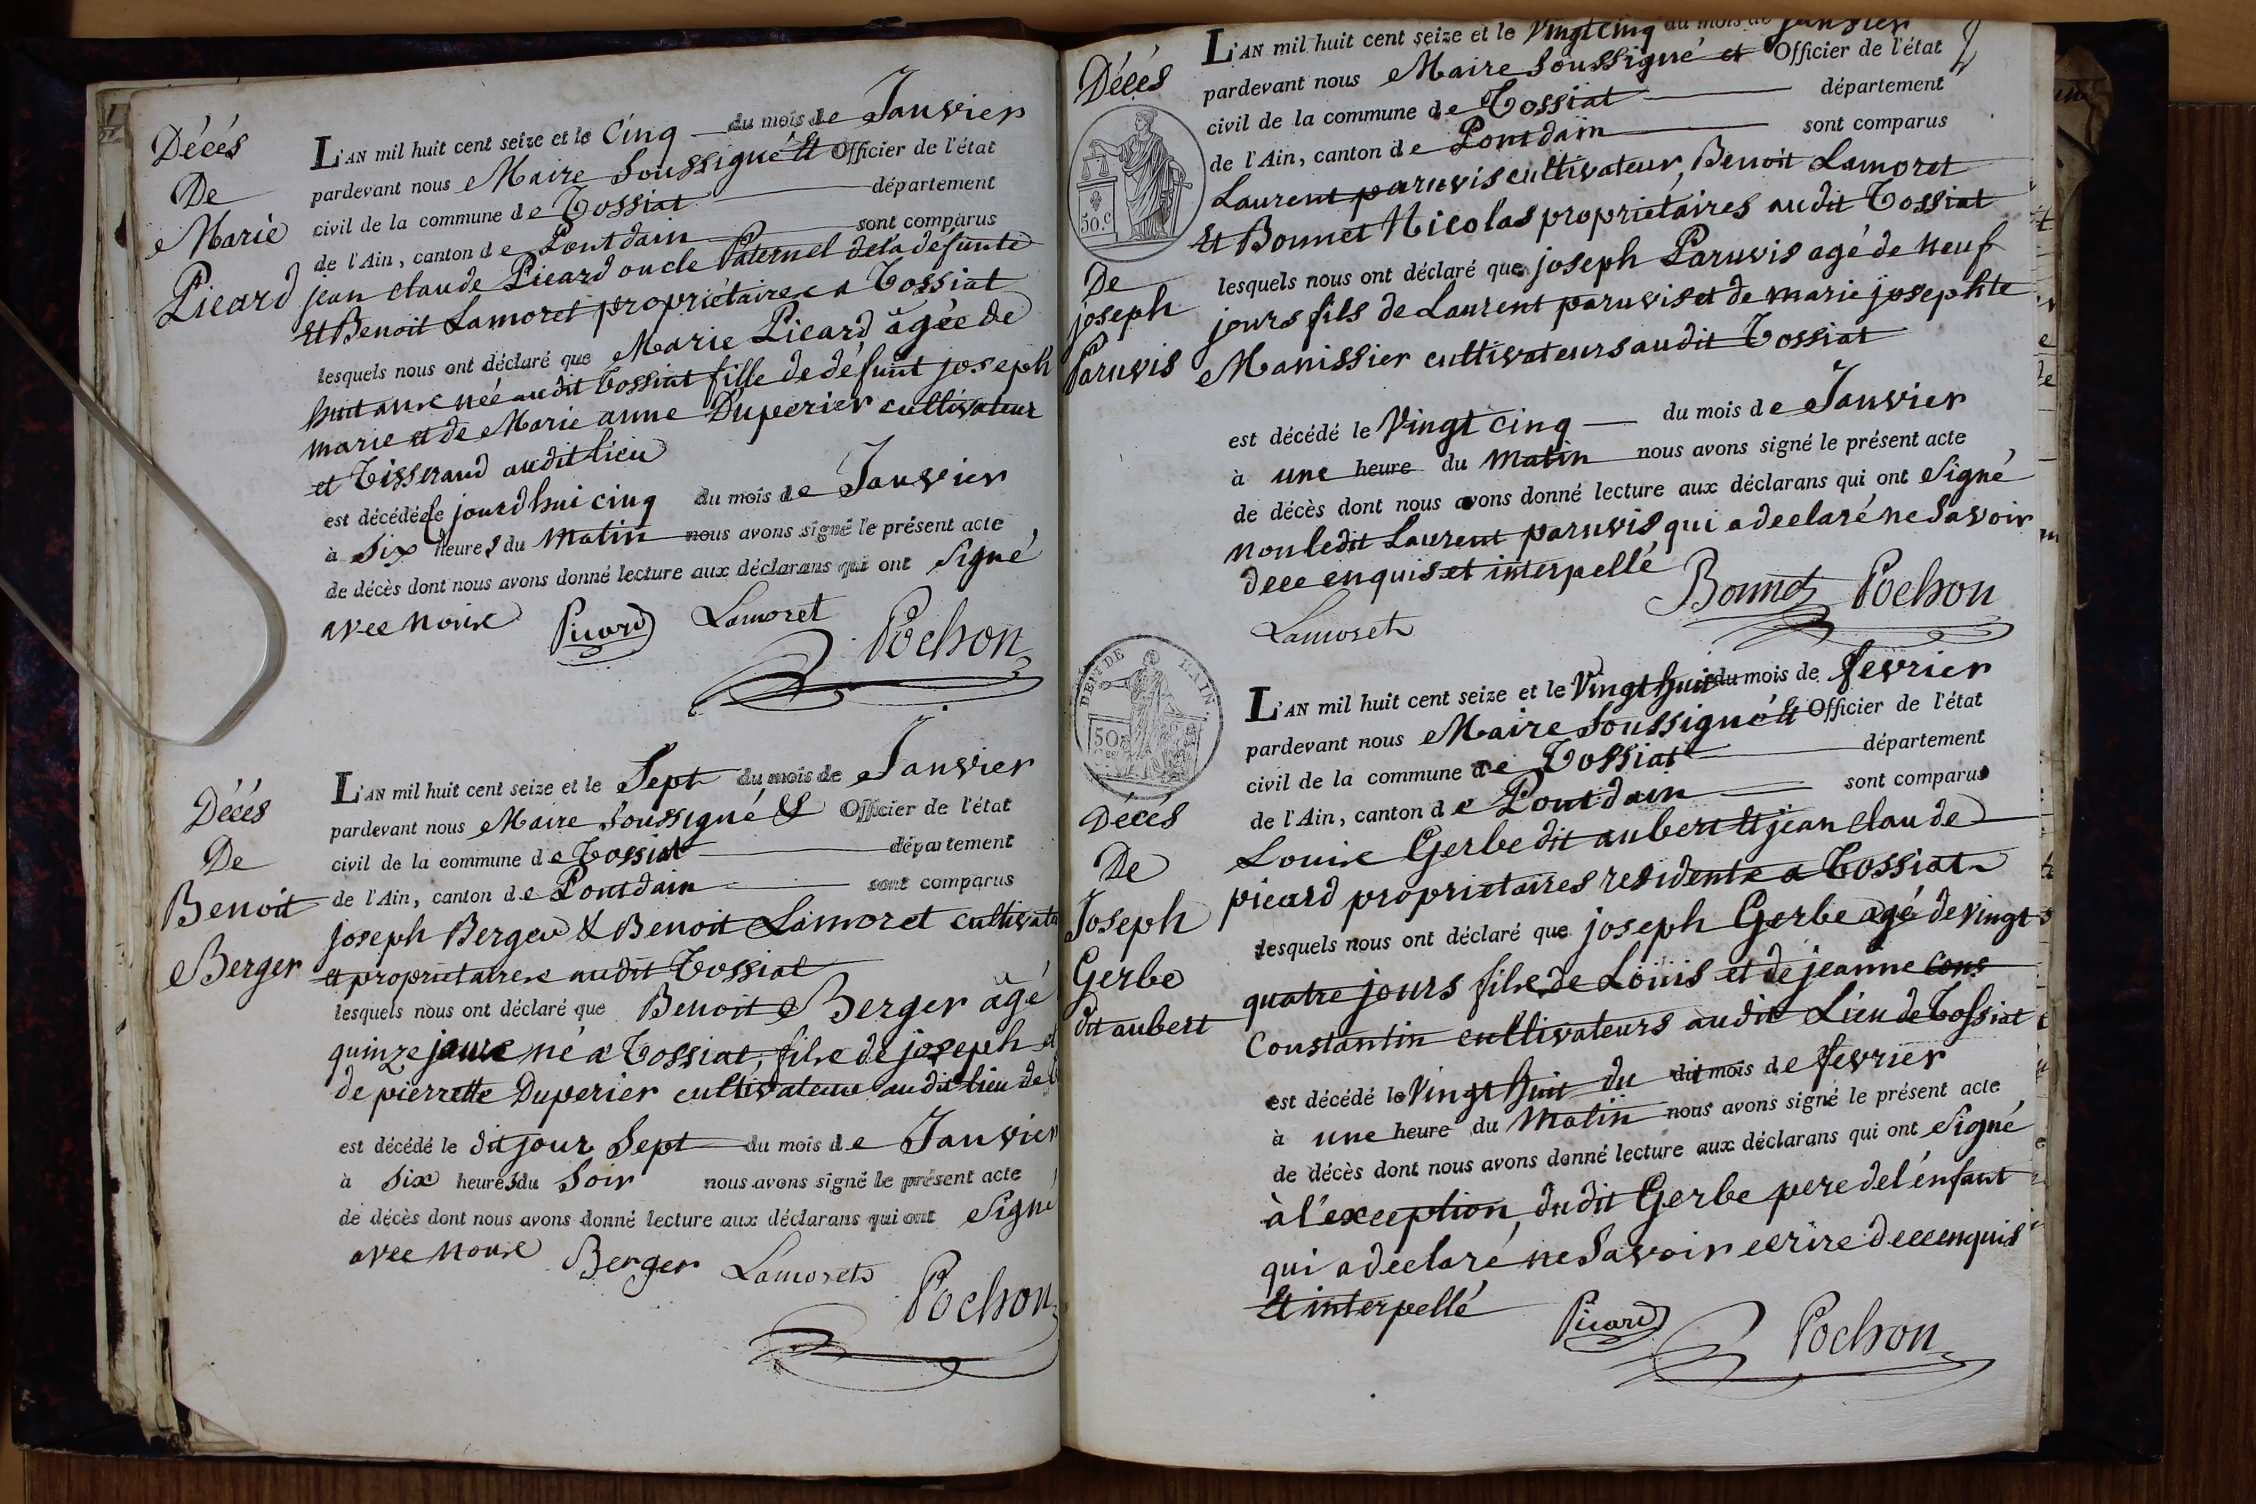 Décés
De
Marie
Picard
L'AN mil huit cent seize et le Cinq du mois de Janvier
pardevant nous Maire Soussigné Et Officier de l'état
civil de la commune de Tossiat département
de l'Ain, canton de Pontdain sont comparus
jean claude Picard oncle Paternel dela defunte
Et Benoit Lamoret propriétaires a Tossiat
lesquels nous ont déclaré que Marie Picard âgée de
huit ans née audit Tossiat fille de défunt joseph
marie et de Marie anne Duperier cultivateur
et Tisserand audit lieu
est décédée le jourd'hui cinq du mois de Janvier
à Six heures du Matin nous avons signé le présent acte
de décès dont nous avons donné lecture aux déclarans qui ont Signé
avec nous Picard Lamoret
Pochon
Décés
De
Benoit
Berger
L'AN mil huit cent seize et le Sept du mois de Janvier
pardevant nous Maire Soussigné & Officier de l'état
civil de la commune de Tossiat département
de l'Ain, canton de Pontdain sont comparus
joseph Berger & Benoit Lamoret cultivat
et proprietaires audit Tossiat
lesquels nous ont déclaré que Benoit Berger âgé
quinze jours né a Tossiat, fils de joseph et
de pierrette Duperier cultivateurs audit lieu de
est décédé le dit jour Sept du mois de Janvier
à Six heures du Soir nous avons signé le présent acte
de décès dont nous avons donné lecture aux déclarans qui ont Signé
avec nous Berger Lamoret
Pochon
2
Décés
50.c
De
joseph
Paruvis
L'AN mil huit cent seize et le Vingt Cinq du mois de Janvier
pardevant nous Maire Soussigné et Officier de l'état
civil de la commune de Tossiat département
de l'Ain, canton de Pontdain sont comparus
Laurent paruvis cultivateur, Benoit Lamoret
Et Bonnet Nicolas propriétaires audit Tossiat
lesquels nous ont déclaré que joseph Paruvis agé de neuf
jours fils de Laurent paruvis et de marie josephte
Manissier cultivateurs audit Tossiat
est décédé le Vingt cinq du mois de Janvier
à une heure du Matin nous avons signé le présent acte
de décès dont nous avons donné lecture aux déclarans qui ont Signé
non ledit Laurent paruvis qui a declaré ne Savoir
dece enquis et interpellé
Lamoret Bonnet Pochon
DEPT DE L'AIN
50
Décés
De
Joseph
Gerbe
dit aubert
L'AN mil huit cent seize et le Vingt huit du mois de fevrier
pardevant nous Maire Soussigné Et Officier de l'état
civil de la commune de Tossiat département
de l'Ain, canton de Pontdain sont comparus
Louis Gerbe dit aubert Et jean claude
picard proprietaires residents a Tossiat
lesquels nous ont déclaré que joseph Gerbe agé de vingt
quatre jours fils de Louis et de jeanne Cons
Constantin cultivateurs audit Lieu de Tossiat
est décédé le Vingt huit du dit mois de fevrier
à une heure du Matin nous avons signé le présent acte
de décès dont nous avons donné lecture aux déclarans qui ont Signé
à l'exception, dudit Gerbe pere de l'énfant
qui a declaré ne Savoir ecrire dece enquis
Et interpellé
Picard Pochon